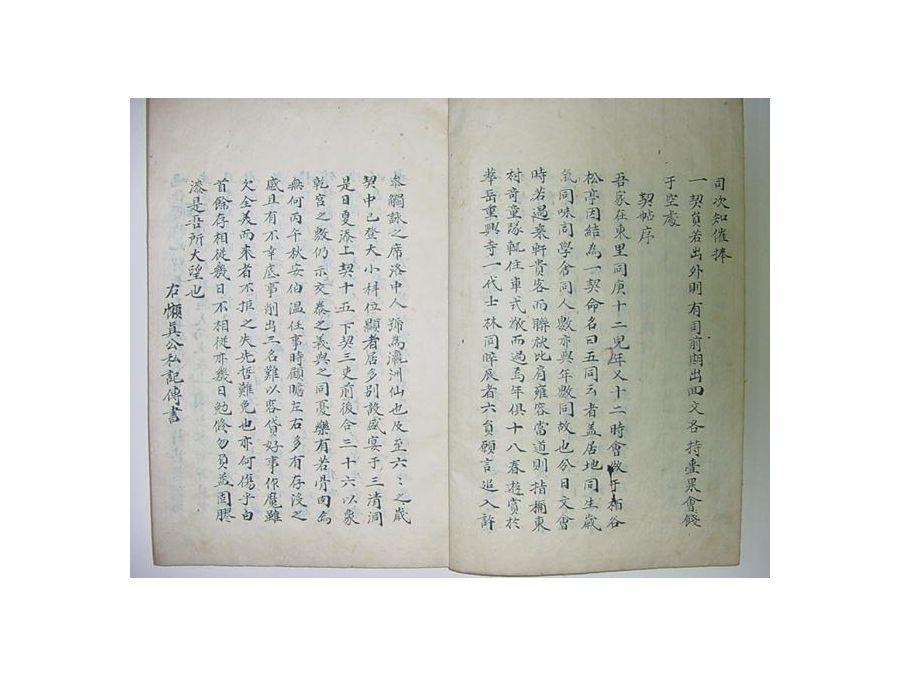 司次知催捧
一契員若出外則有司前期出四文各持壺果會餞
于空處
契帖序
吾家在東里同庚十二兒年又十二時會做于栢谷
松亭因結為一契命名曰五同云者盖居地同生歲
同氣味同學舍同人數亦與年數同故也分日文會
時若遇乘軒貴客而聯袂比肩雍容當道則指稱東
村奇童隊輒住車式旅而過焉年俱十八春遊賞於
華岳重興寺一代士林同晬辰者六員願言追入許
叅觴詠之席洛中人號為瀛洲仙也及至六〻之歲
契中已登大小科位顯者居多別設盛宴于三清洞
是日夏添上契十五下契三吏前後合三十六以象
乾宫之數仍示交泰之義與之同憂樂有若骨肉焉
無何丙午秋安伯温任事時顧瞻左右多有存沒之
感且有不幸底事削出三名難以容貸好事作魔雖
欠全美而來者不拒之失先哲難免也亦何傷乎白
首餘存相從幾日不相從亦幾日勉修勿負益固膠
漆是吾所大望也
右懶真公私記傳書